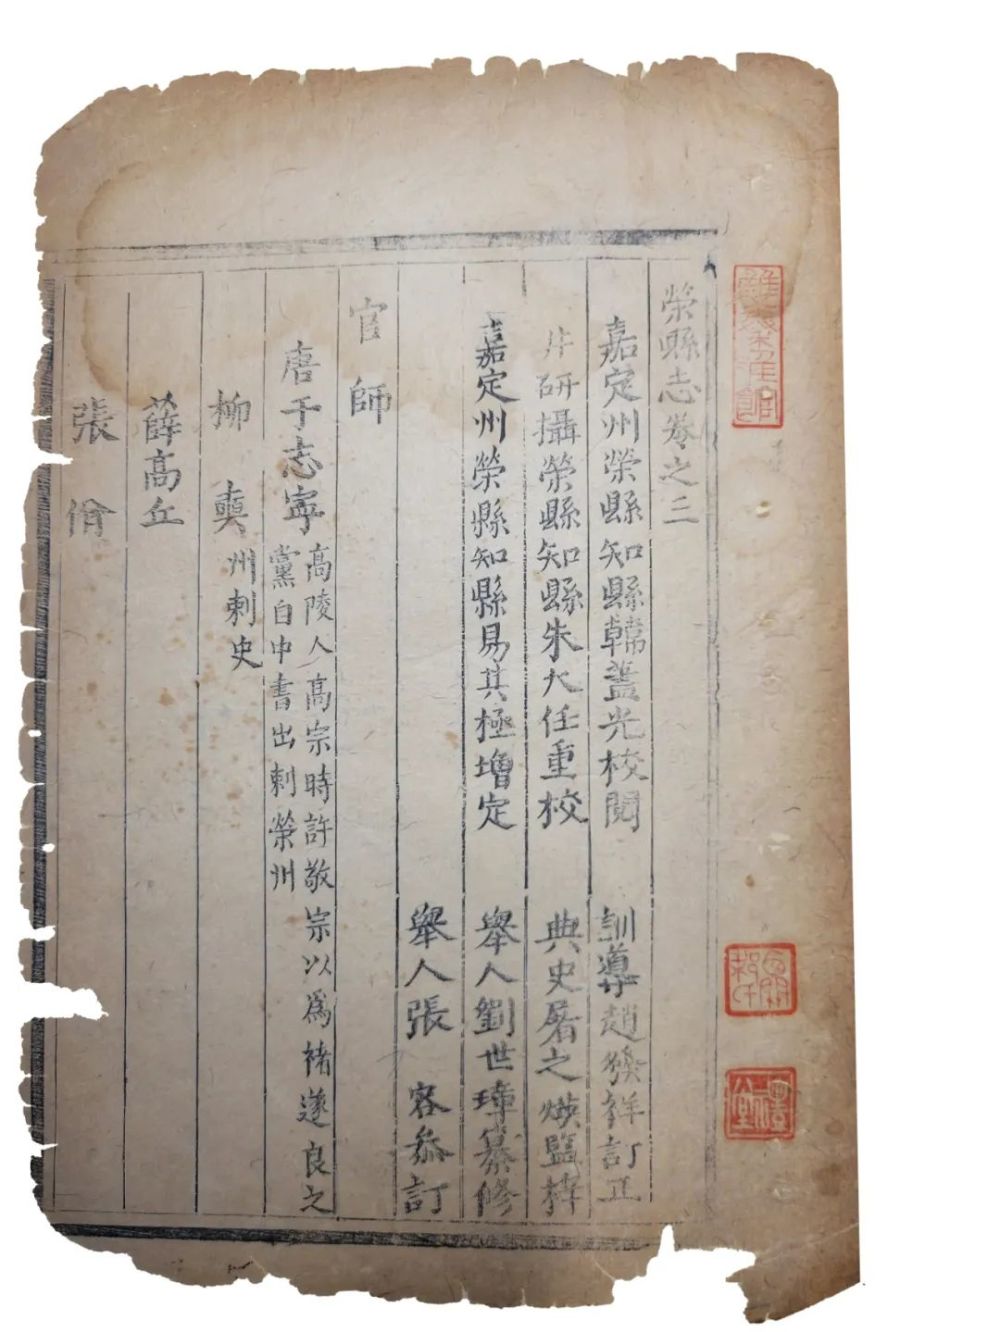 榮縣志卷之三
嘉定州榮縣知縣韓蓋光校閱 訓導趙發祥訂正
井研攝榮縣知縣朱大任重校 典史屠之煐監梓
嘉定州榮縣知縣易其極增定 舉人劉世璋纂修
舉人張 容叅訂
官師
唐于志寧 高陵人高宗時許敬宗以爲褚遂良之
黨自中書出剌榮州
柳奭 州剌史
薛高丘
張脩